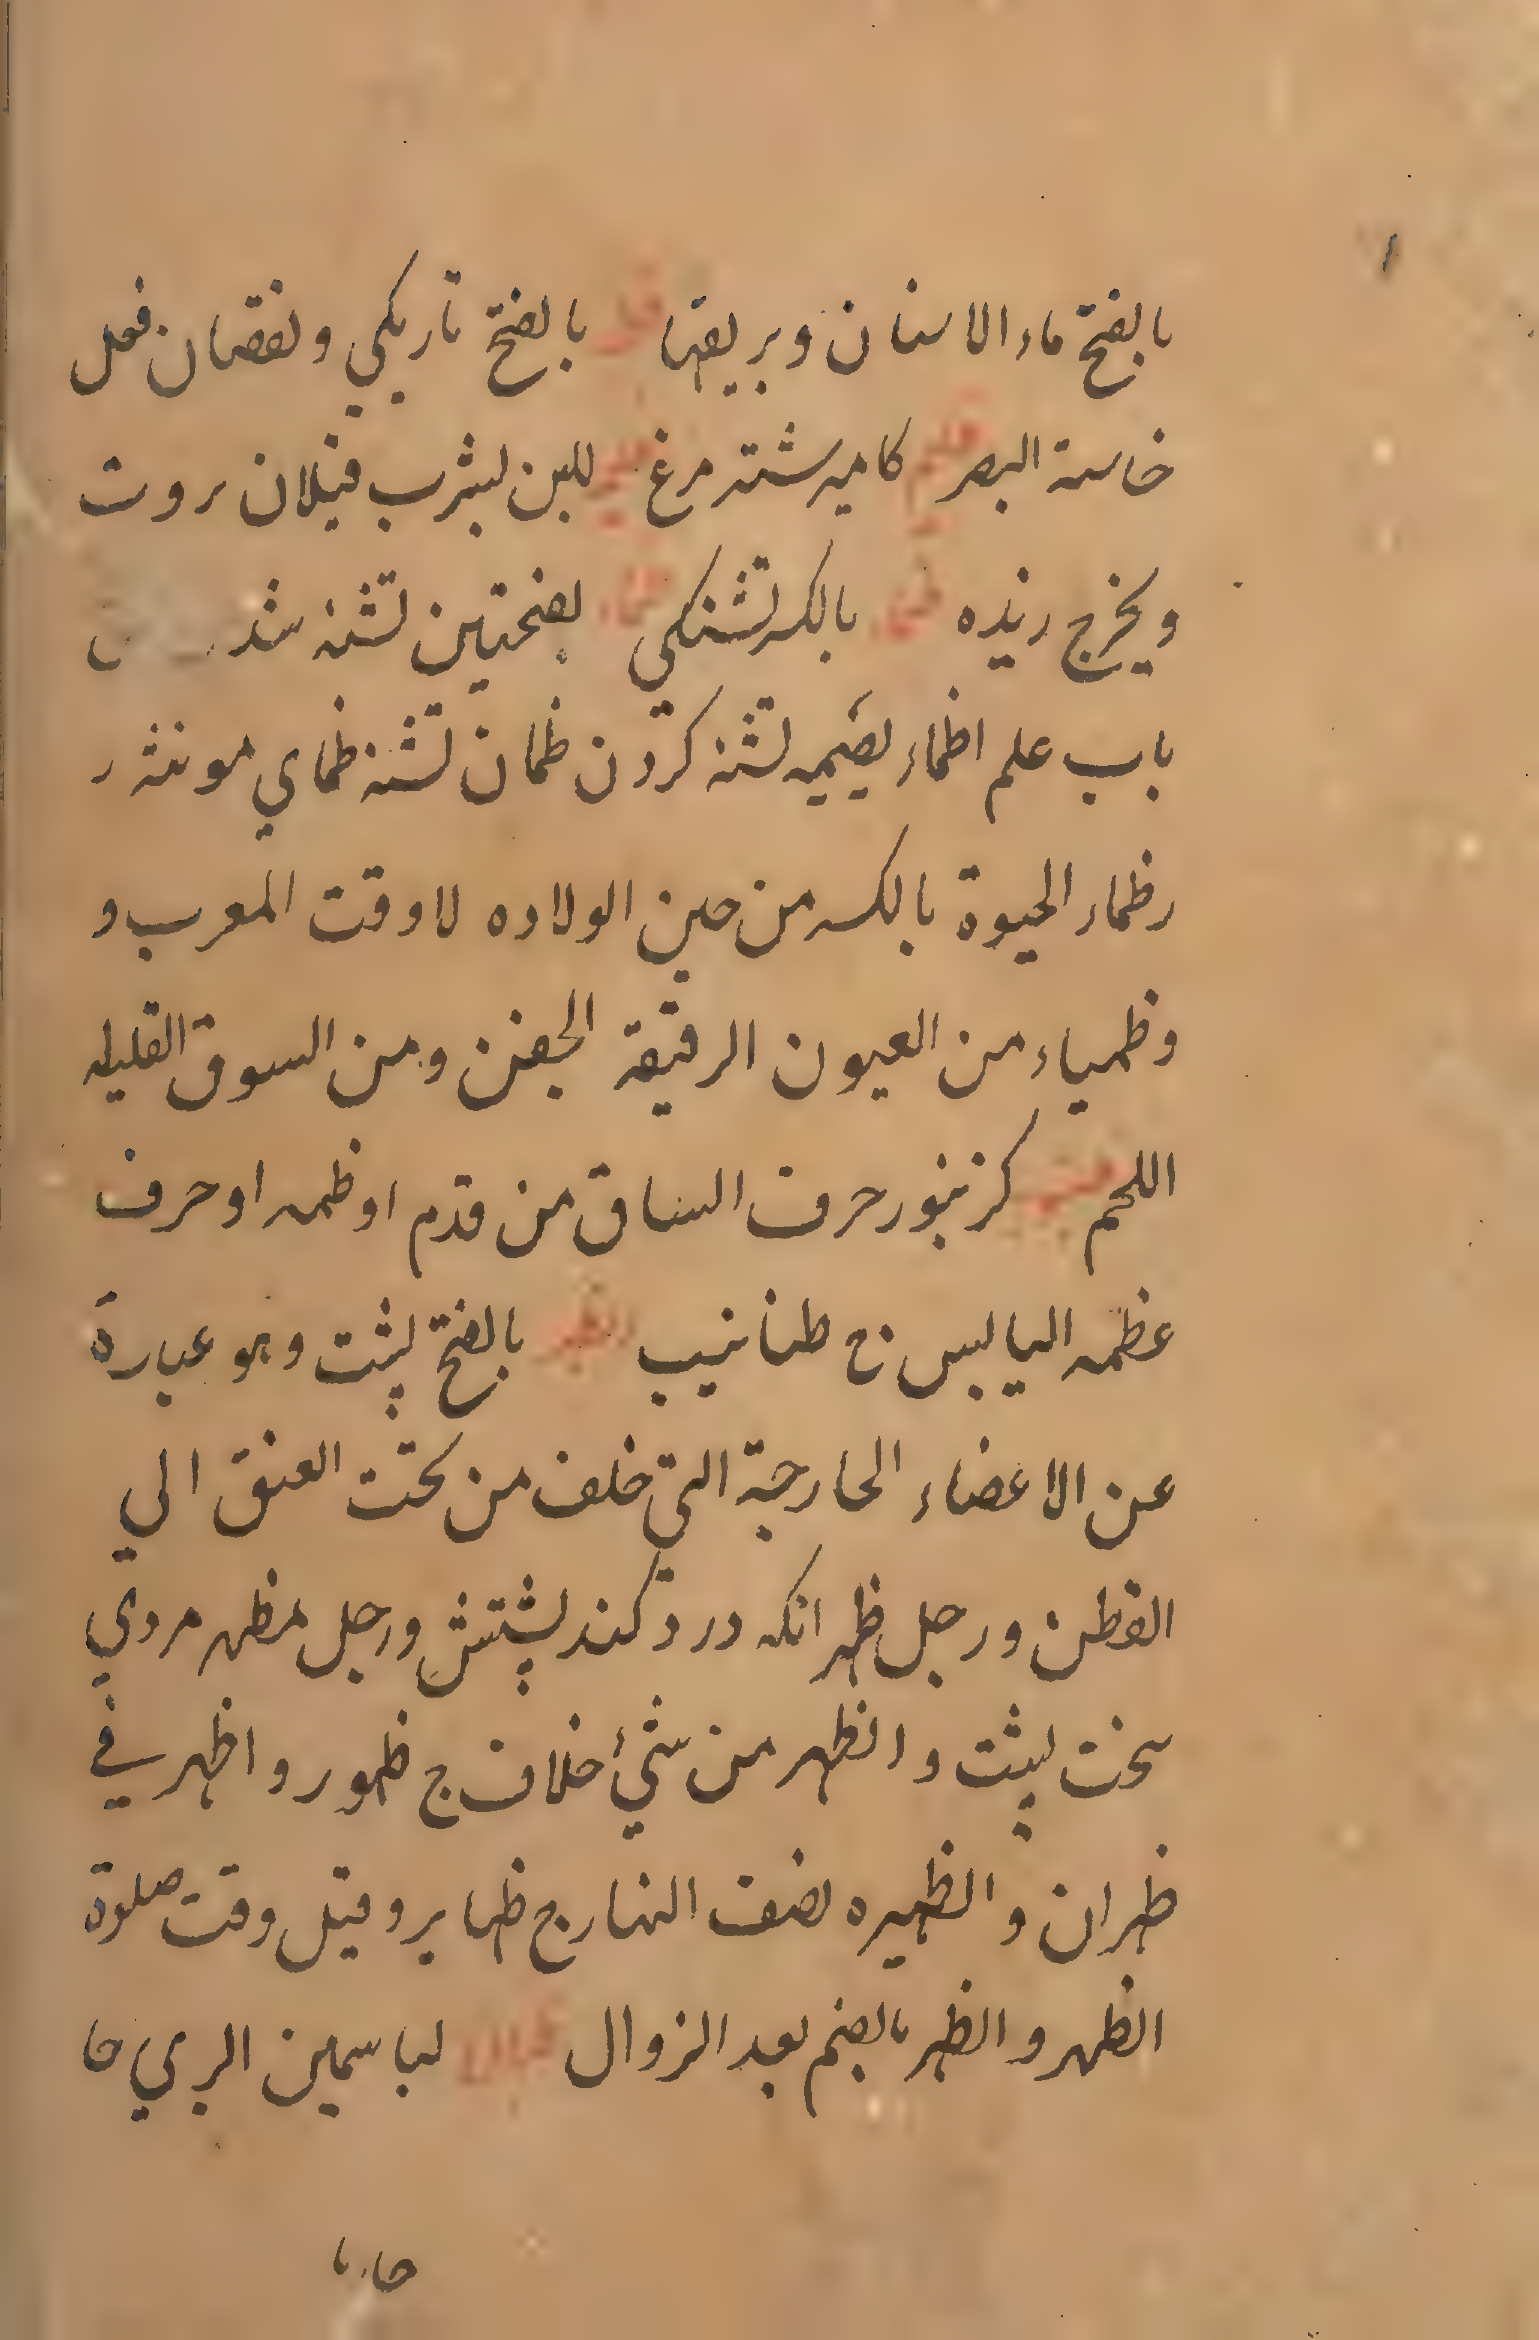 بالفتح ماء الاسنان وبريقها ظلم بالفتح تاريكي ونقصان فعل
خاسة البصر ظليم كامير شتر مرغ للبن يشرب قيلان روت
ويخرج زبده بالكسر تشنكي بفتحتين تشنه شدن س
باب علم اظماء يضميه تشنه كردن ظمان تشنه ظماي مونثه ر
رظماء الحيوة بالكسر من حين الولاده لا وقت المعرب و
وظمياء من العيون الرقيقة الجفن ومن السوق القليله
اللحم كزنبور حرف الساق من قدم او ظمه او حرف
عظمه اليابس ج ظنانيب الظهر بالفتح پشت وهو عبارة
عن الاعضاء الحارجة التي خلف من تحت العنق الي
القطن ورجل ظهر انكه درد كند پشتش ورجل مظهر مردي
سخت پشت والظهر من شيئ خلاف ج ظهور واظهر في
ظهران والظهيره نصف النهار ج ظهاير وقيل وقت صلوة
الظهر والظهر بالضم بعد الزوال لباسمين البري حا